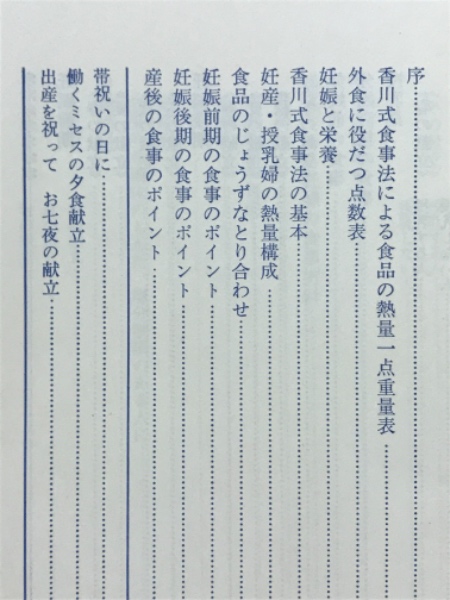 序
香川式食事法による食品の熱量一点重量表
外食に役だつ点数表
妊娠と栄養
香川式食事法の基本
妊産・授乳婦の熱量構成
食品のじょうずなとり合わせ
妊娠前期の食事のポイント
妊娠後期の食事のポイント
産後の食事のポイント
帯祝いの日に
働くミセスの夕食献立
出産を祝って　お七夜の献立